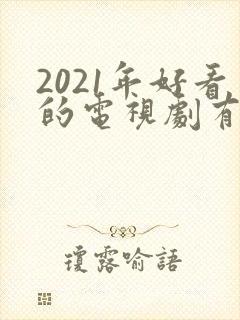 2021年好看
的電視劇有
瓊露喻語